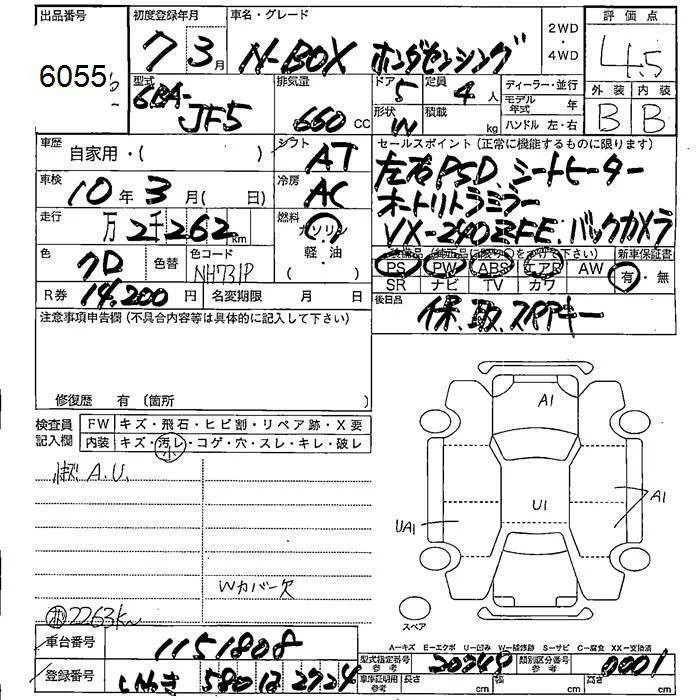 出品番号 初度登録年月 車名・グレード 評価点
6055 7 3月 N-BOX ホンダセンシング 2WD・4WD 4.5
型式 排気量 ドア 定員 ディーラー・並行 外装 内装
6BA-JF5 660 CC 5 4人 モデル年式 年 B B
形状 IN 積載 kg ハンドル 左・右
車歴 自家用・( ) シフト AT
セールスポイント (正常に機能するものに限ります)
左右PSD シートヒーター
オートリトラミラー
車検 10年 3月( 日) 冷房 AC
走行 万2千262km 燃料 ガソリン 軽油 ( )
VX-240ZFE. バックカメラ
色 クロ 色替 色コード NH731P
PS PW ABS エアB AW 新車保証書
SR ナビ TV カワ 有・無
R券 14,200円 名変期限 月 日
後日品 保、取、スペアキー
注意事項申告欄 (不具合内容等は具体的に記入して下さい)
修復歴 有 (箇所 )
検査員記入欄 FW キズ・飛石・ヒビ割・リペア跡・X要
内装 キズ・汚レ・コゲ・穴・スレ・キレ・破レ
小
A.U.
Wカバー欠
2263km
A1
U1
A1
UA1
スペア
A－キズ E－エクボ U－凹み W－補修跡 S－サビ C－腐食 XX－交換済
車台番号 1151808
型式指定番号 参考 20249 類別区分番号 参考 0001
登録番号 580 2724
車庫証明用 参考 長さ cm 幅 cm 高さ cm